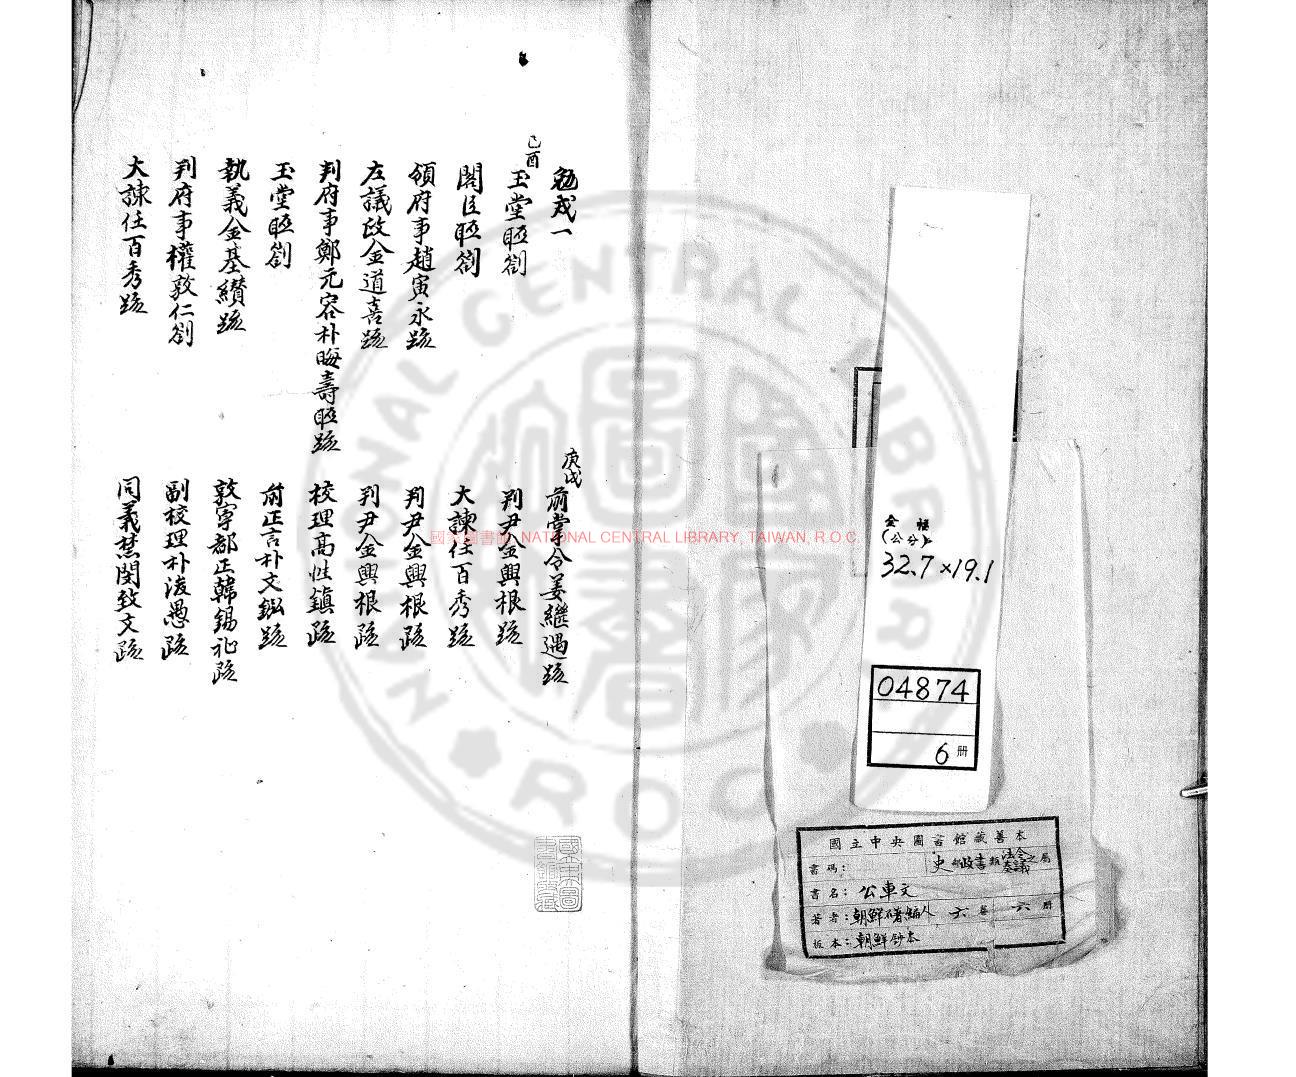 勉戒一
己酉
玉堂聯劄
閣臣聯劄
領府事趙寅永疏
左議政金道喜疏
判府事鄭元容朴晦壽聯疏
玉堂聯劄
執義金基纘疏
判府事權敦仁劄
大諫任百秀疏
庚戌
前掌令姜繼遇疏
判尹金興根疏
大諫任百秀疏
判尹金興根疏
判尹金興根疏
校理高性鎮疏
前正言朴文鉉疏
敦寧都正韓錫祉疏
副校理朴浚愚疏
同義禁閔致文疏
國家圖書館 NATIONAL CENTRAL LIBRARY, TAIWAN, R.O.C.
NATIONAL CENTRAL LIBRARY R.O.C
(公分)
32.7×19.1
04874
6 册
國立中央圖書館藏善本
書碼：
史部政書類法令奏議之屬
書名：公車文
著者：朝鮮不著編人 六卷 六册
板本：朝鮮鈔本